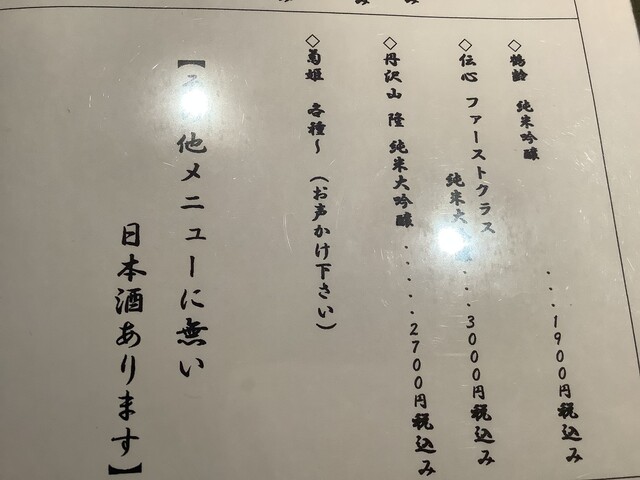 ◇鶴齢 純米吟醸 ・・・1900円税込み
◇伝心 ファーストクラス
純米大 ・・・3000円税込み
◇丹沢山 隆 純米大吟醸 ・・・・・2700円税込み
◇菊姫 各種~ (お声かけ下さい)
【 他メニューに無い
日本酒あります】